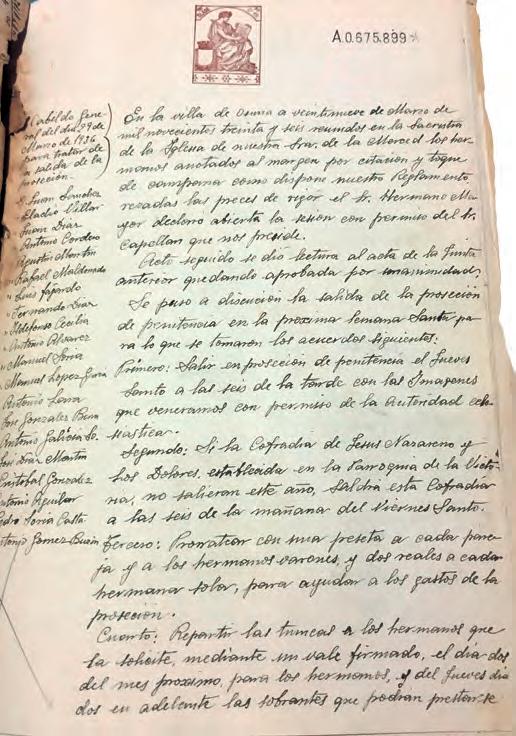 A.0.675.899
Cabildo Gene-
ral del dia 29 de
Marzo de 1936
para tratar de
la salida de la
proseción.
Juan
Eladio Villar
Juan Diaz
Antonio Cordero
Agustin Martin
Rafael Maldonado
" Luis Fajardo
" Fernando Diaz
" Ildefonso Cecilia
" Antonio Alvarez
" Manuel Soria
" Manuel Lopez
Antonio Lara
Jose Gonzalez
Antonio Galicia
Jose Diaz Martin
Cristobal Gonzalez
Antonio Aguilar
Pedro Soria Casta
Antonio Gomez
En la villa de Osuna a veintinueve de Marzo de
mil novecientos treinta y seis reunidos en la Sacristia
de la Iglesia de nuestra Sra. de la Merced los her-
manos anotados al margen por citación y toque
de campana como dispone nuestro Reglamento
rezadas las preces de rigor el Sr. Hermano Ma-
yor declaro abierta la sesion con permiso del Sr.
Capellan que nos preside.
Acto seguido se dio lectura al acta de la Junta
anterior quedando aprobada por unanimidad.
Se paso a discución la salida de la proseción
de penitencia en la proxima Semana Santa pa-
ra lo que se tomaron los acuerdos siguientes:
Primero: Salir en proseción de penitencia el Jueves
Santo a las seis de la tarde con las Imagenes
que veneramos con permiso de la Autoridad ecle-
siastica.
Segundo: Si la Cofradia de Jesus Nazareno y
Los Dolores, establecida en la Parroquia de la Victo-
ria, no salieran este año, saldrá esta Cofradia
a las seis de la mañana del Viernes Santo.
Tercero: Prorratear con una peseta a cada pare-
ja y a los hermanos varones, y dos reales a cada
hermana sola, para ayudar a los gastos de la
proseción.
Cuarto: Repartir las tunicas a los hermanos que
la solicite, mediante un vale firmado, el dia dos
del mes proximo, para los hermanos, y del Jueves dia
dos en adelante las sobrantes que podran prestarse